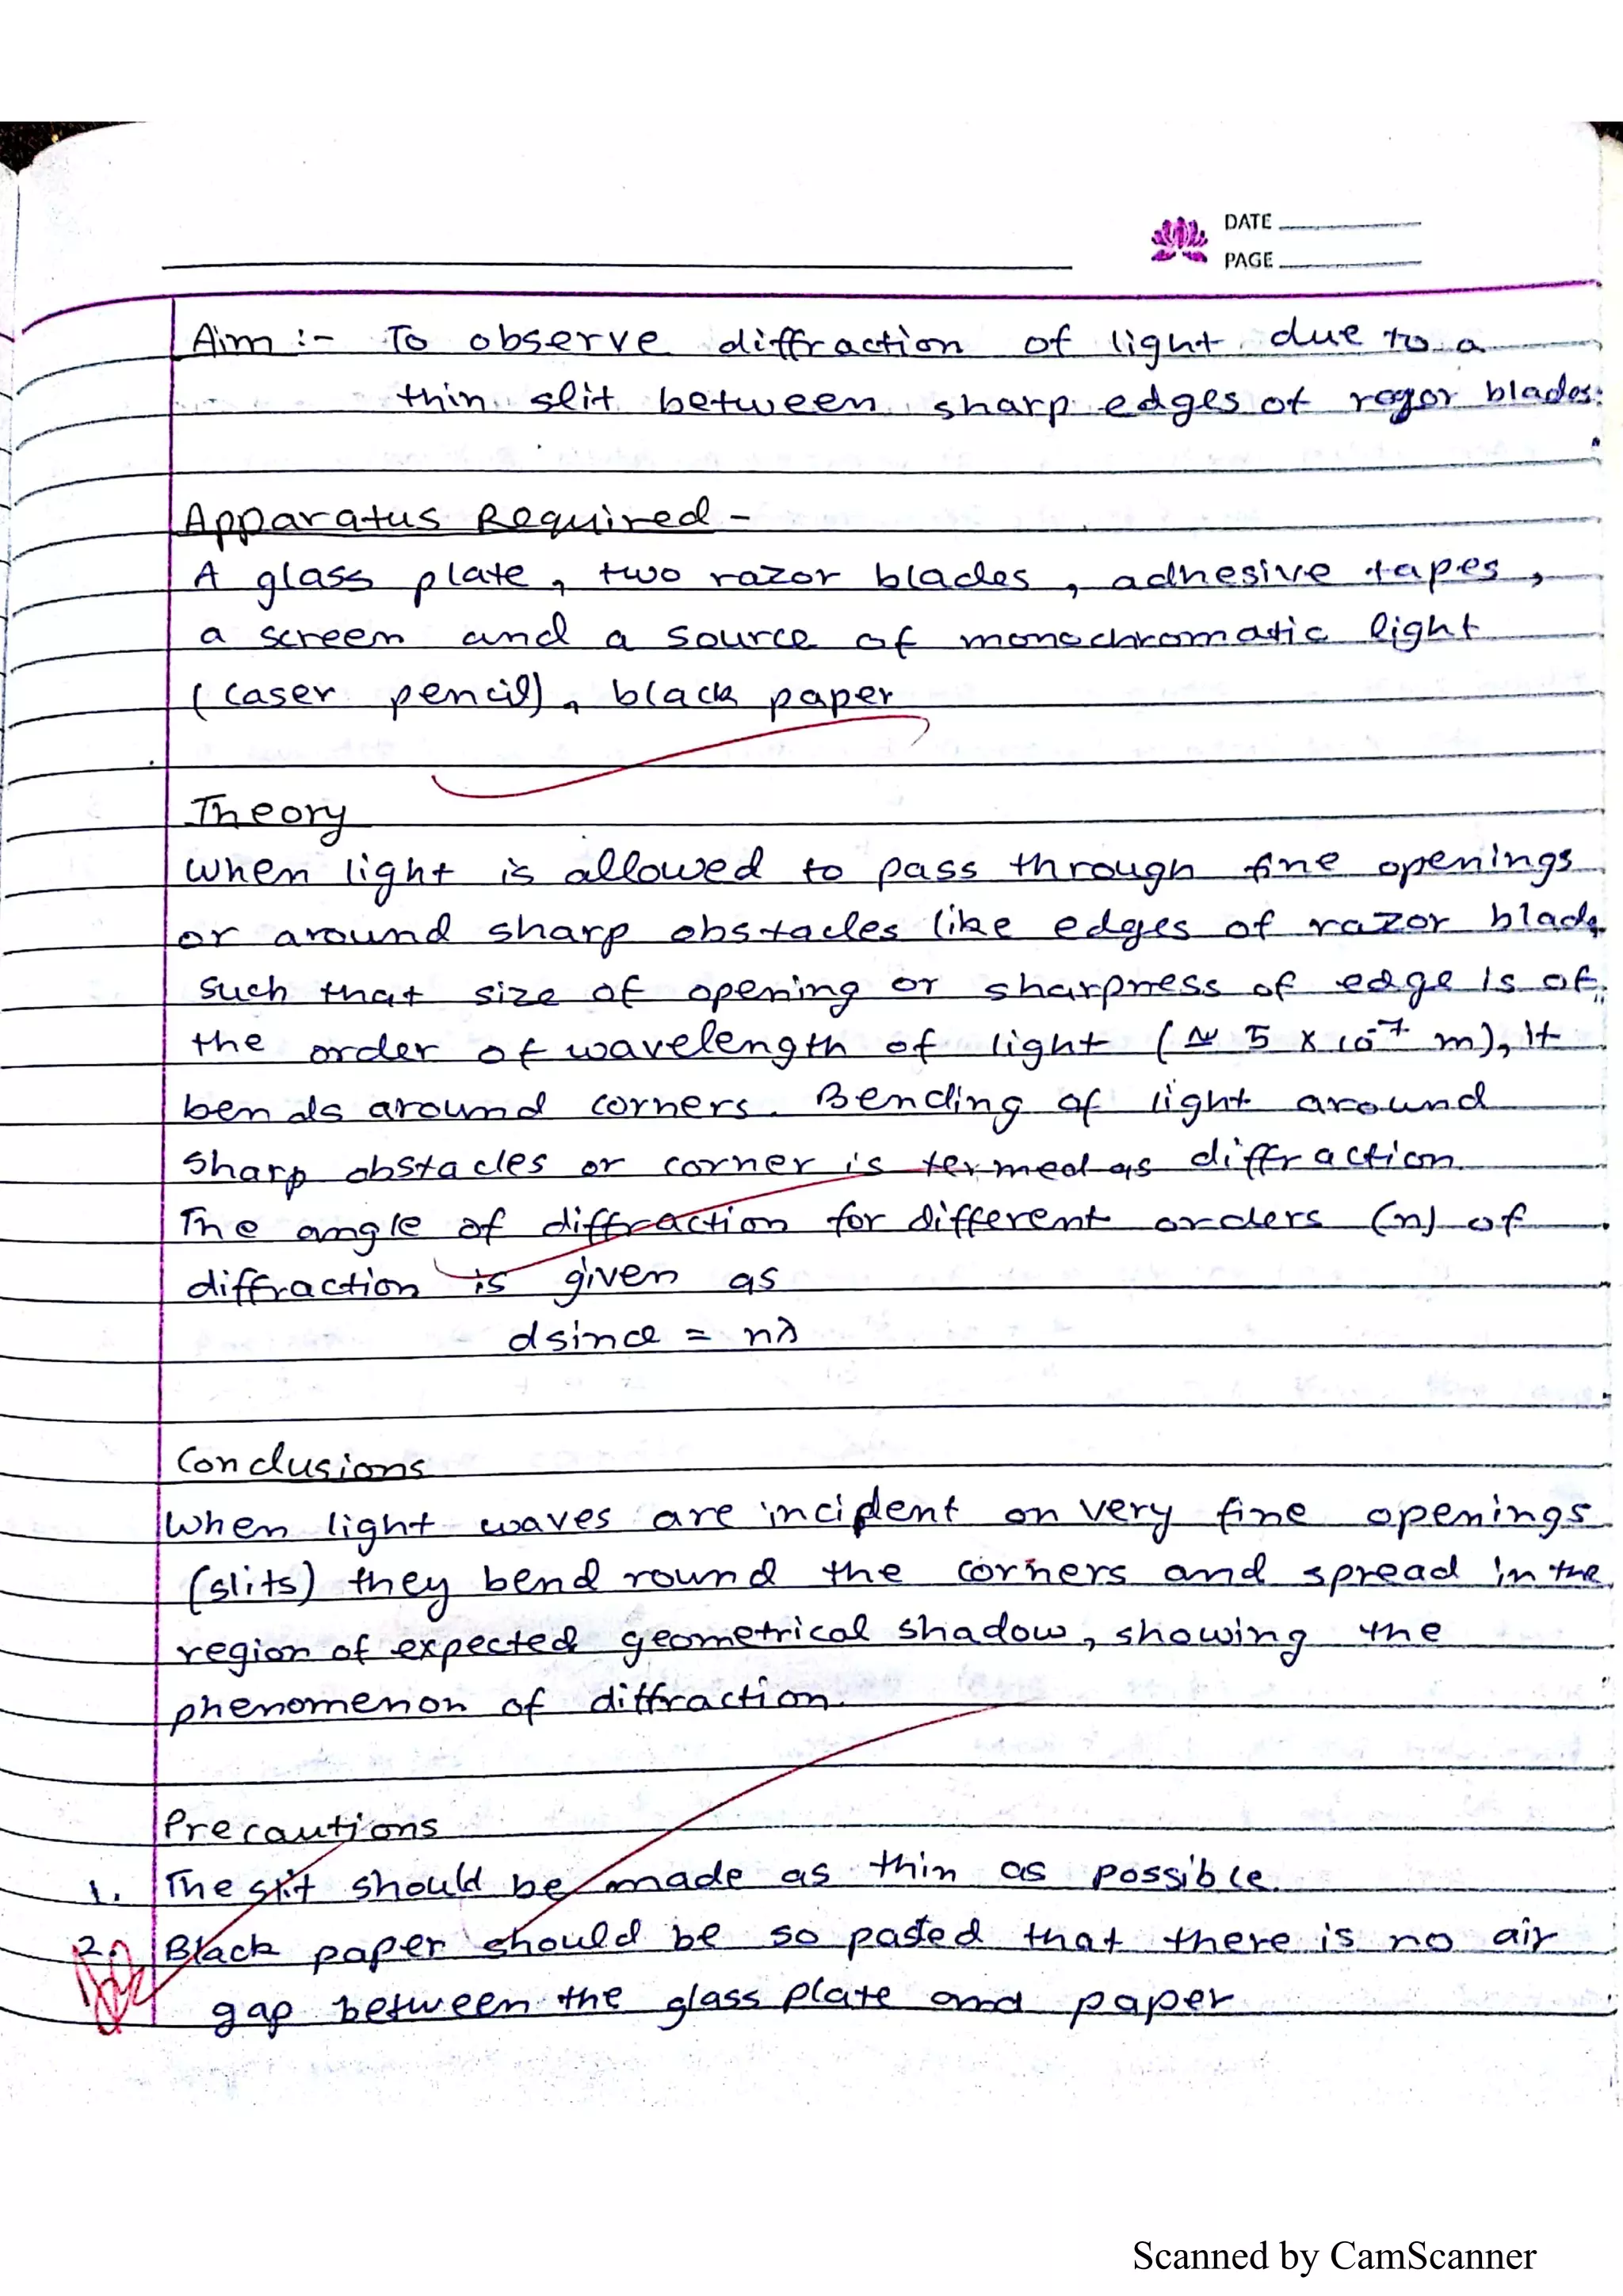 DATE
PAGE
Aim :- To observe diffraction of light due to a
thin slit between sharp edges of rozor blades.
Apparatus Required -
A glass plate, two razor blades, adhesive tapes,
a screen and a source of monochromatic light
(Laser pencil), black paper
Theory
When light is allowed to pass through fine openings
or around sharp obstacles like edges of razor blade
such that size of opening or sharpness of edge is of
the order of wavelength of light (≃ 5 × 10⁻⁷ m), it
bends around corners. Bending of light around
sharp obstacles or corner is termed as diffraction
The angle of diffraction for different orders (n) of
diffraction is given as
dsinθ = nλ
Conclusions
When light waves are incident on very fine openings
(slits) they bend round the corners and spread in the
region of expected geometrical shadow, showing the
phenomenon of diffraction.
Precautions
1. The slit should be made as thin as possible.
2. Black paper should be so pasted that there is no air
gap between the glass plate and paper
Scanned by CamScanner